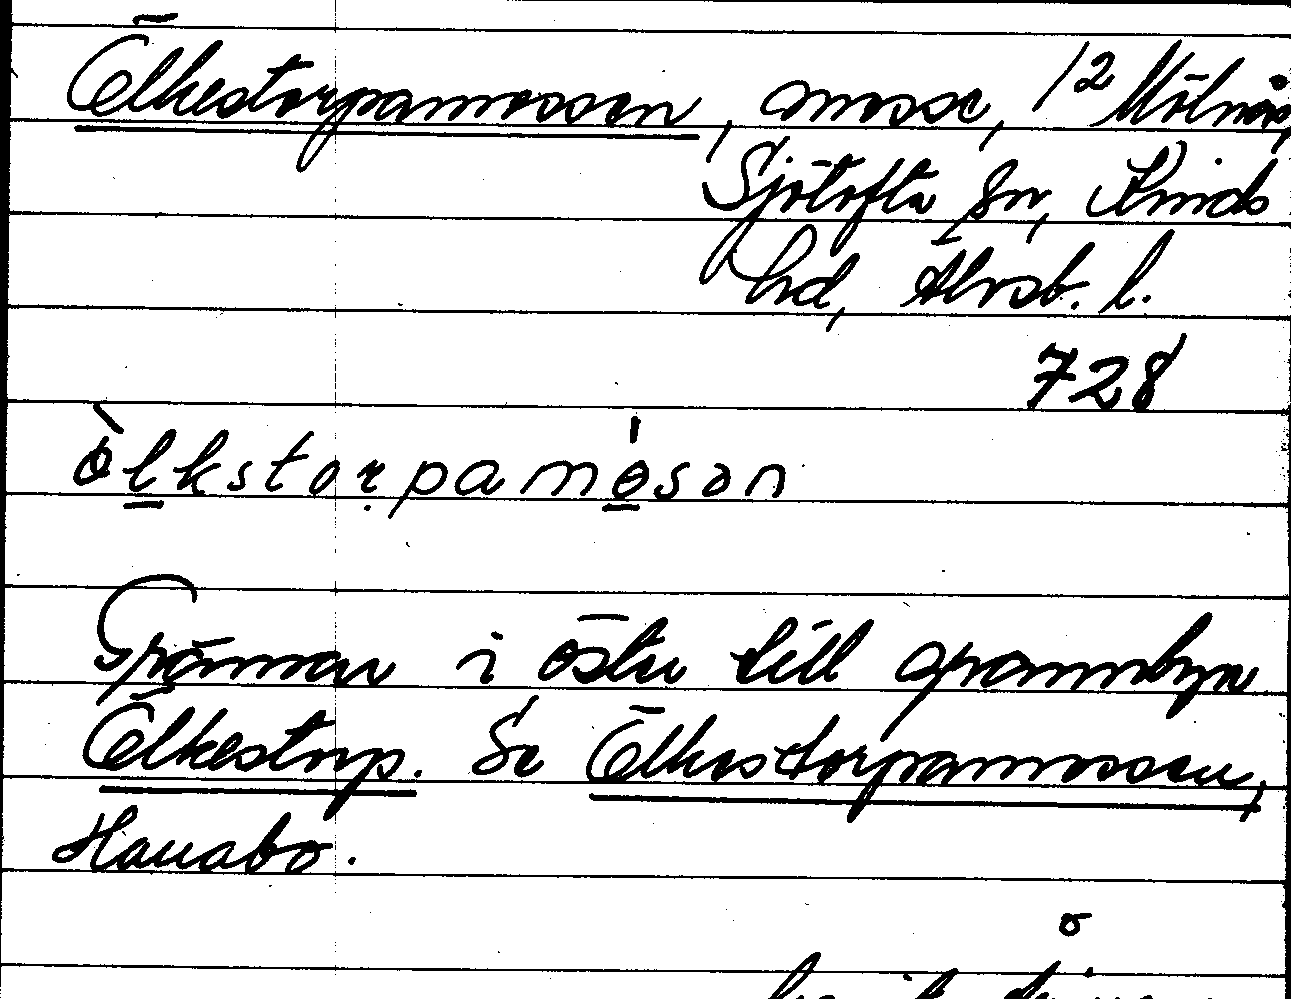 Ölkestorpamossen, mosse, 1² Mölnås,
Sjötofta sn, Kinds
hd, Älvsb. l.
728
ò̀lkstorpamòsan
Gränsar i öster till grannbyn
Ölkestorp. Se Ölkestorpamossen,
Hanabo.